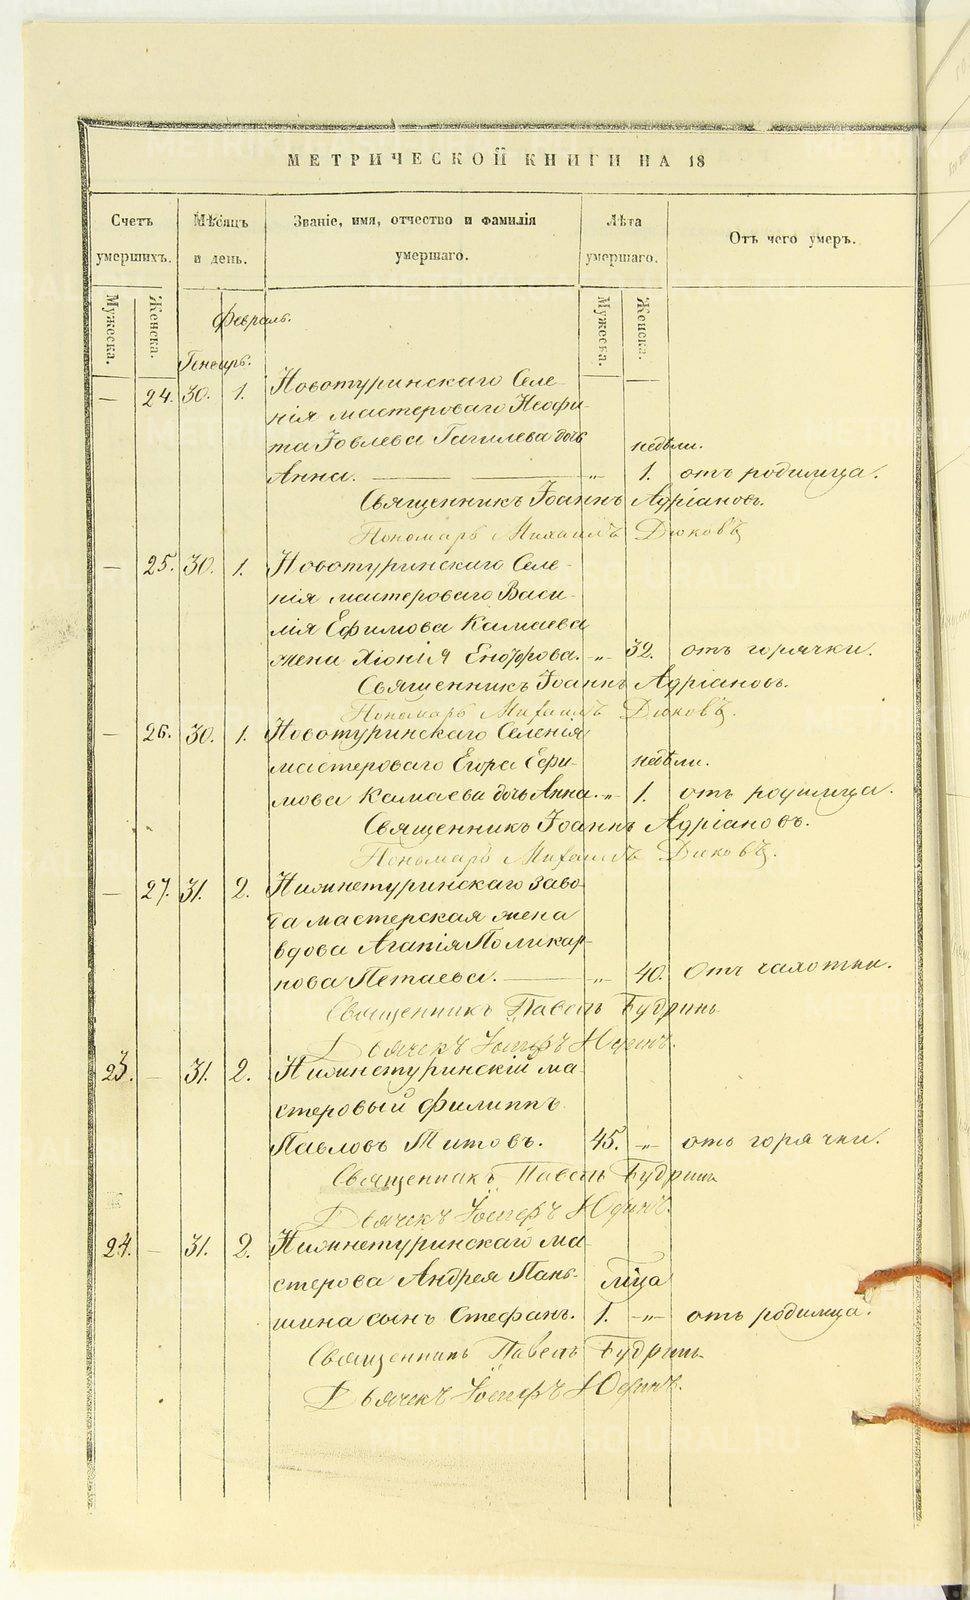 МЕТРИЧЕСКОЙ КНИГИ НА 18
Счетъ умершихъ. Мѣсяцъ и день. Званіе, имя, отчество и фамилія умершаго. Лѣта умершаго. Отъ чего умеръ.
Мужеска. Женска. Мужеска. Женска.
Февраль.
Генварь.
— 24. 30. 1. Новотуринскаго Селе-
нія мастероваго Неофи-
та Іовлева Гагилева дочь недѣли.
Анна. — — „ 1. отъ родимца.
Священникъ Іоаннъ Адріановъ.
Пономарь Михаилъ Дюковъ
— 25. 30. 1. Новотуринскаго Селе-
нія мастероваго Васи-
лія Ефимова Камаева
жена Хіонія Енофрова. „ 32. отъ горячки.
Священникъ Іоаннъ Адріановъ.
Пономарь Михаилъ Дюковъ.
— 26. 30. 1. Новотуринскаго Селенія
мастероваго Егора Ефи- недѣли.
мова Камаева дочь Анна. „ 1. отъ родимца.
Священникъ Іоаннъ Адріановъ.
Пономарь Михаилъ Дюковъ.
— 27. 31. 2. Нижнетуринскаго заво-
да мастерская жена
вдова Агапія Поликар-
пова Петаева. — „ 40. Отъ чахотки.
Священникъ Павелъ Будринъ
Дьячекъ Іосифъ Юринъ.
23. — 31. 2. Нижнетуринскій ма-
стеровый Филиппъ
Павловъ Титовъ. 45. „ отъ горячки.
Священникъ Павелъ Будринъ
Дьячекъ Іосифъ Юринъ.
24. — 31. 2. Нижнетуринскаго ма-
стерова Андрея Пань-
шина сынъ Стефанъ. 1. „ отъ родимца.
Священникъ Павелъ Будринъ
Дьячекъ Іосифъ Юринъ.